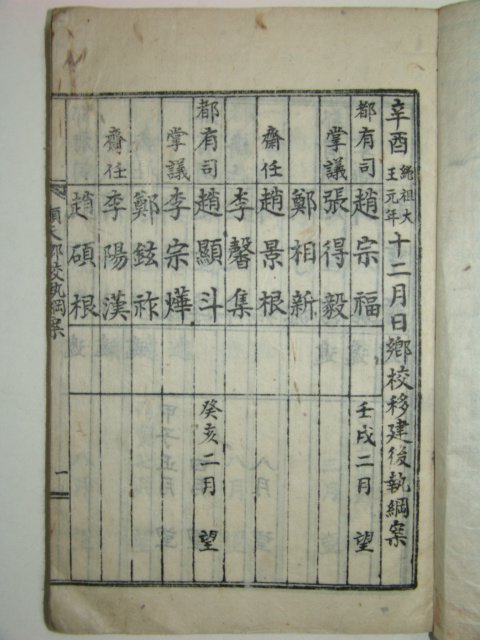 辛酉 純祖大王元年 十二月日鄉校移建後執綱案
都有司 趙宗福 壬戌二月 望
掌議 張得毅
鄭相新
齋任 趙景根
李馨集
都有司 趙顯斗 癸亥二月 望
掌議 李宗燁
鄭鉉祚
齋任 李陽漢
趙碩根
順天鄉校執綱案 一